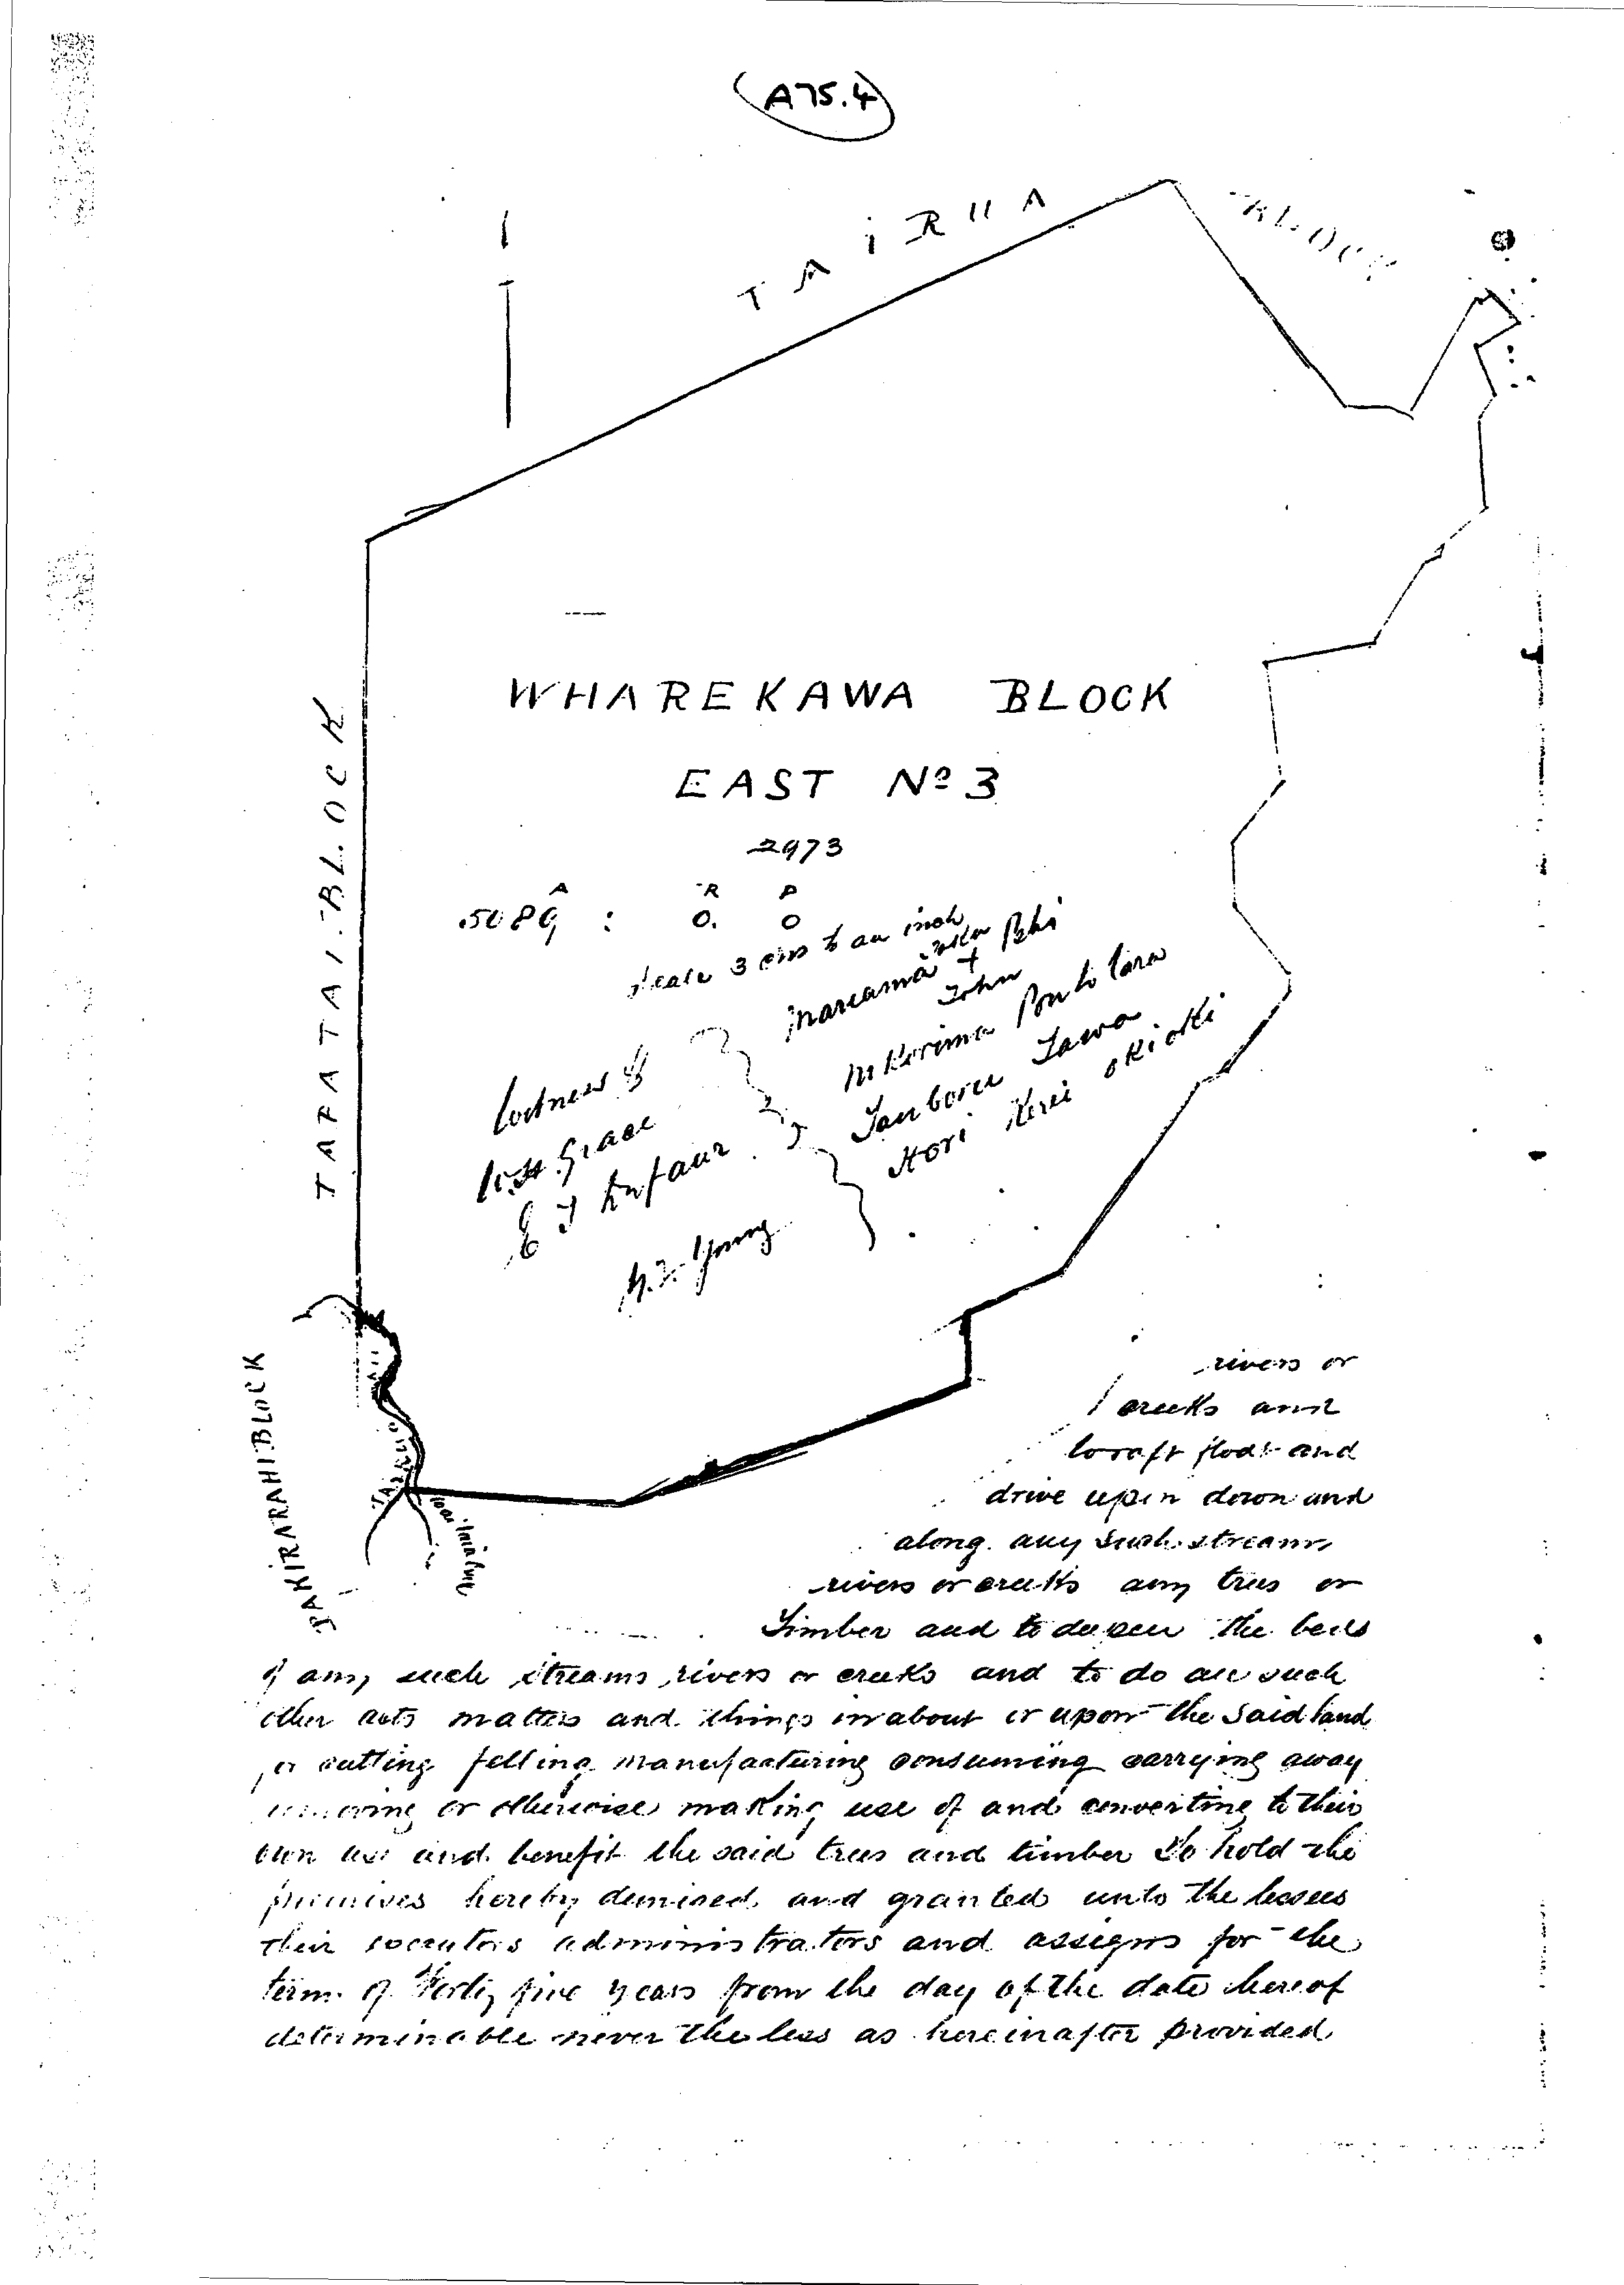 A75.4
TAIRUA BLOCK
WHAREKAWA BLOCK
EAST Nº 3
2973
A R P
5089 : 0. 0
Scale 3 to an inch
TAPATAI BLOCK
Mareama + Pehi
John
Tamboren Tawa
Hori Kerei okioki
Witness of
Grace
Young
rivers or
creeks and
to raft float and
drive up in down and
along any such streams
rivers or creeks any trees or
Timber and to deepen the beds
of any such streams rivers or creeks and to do all such
other acts matters and things in about or upon the said land
or cutting felling manufacturing consuming carrying away
removing or otherwise making use of and converting to their
own use and benefit the said trees and timber To hold the
premises hereby demised and granted unto the lessees
their executors administrators and assigns for the
term of Forty five years from the day of the date hereof
determinable never the less as hereinafter provided